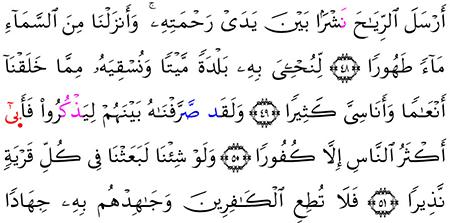 أَرْسَلَ ٱلرِّيَٰحَ نَشْرًۢا بَيْنَ يَدَىْ رَحْمَتِهِۦ ۚ وَأَنزَلْنَا مِنَ ٱلسَّمَآءِ
مَآءً طَهُورًا ﴿٤٨﴾ لِّنُحْـِۧىَ بِهِۦ بَلْدَةً مَّيْتًا وَنُسْقِيَهُۥ مِمَّا خَلَقْنَآ
أَنْعَٰمًا وَأَنَاسِىَّ كَثِيرًا ﴿٤٩﴾ وَلَقَد صَّرَّفْنَٰهُ بَيْنَهُمْ لِيَذْكُرُوا۟ فَأَبَىٰٓ
أَكْثَرُ ٱلنَّاسِ إِلَّا كُفُورًا ﴿٥٠﴾ وَلَوْ شِئْنَا لَبَعَثْنَا فِى كُلِّ قَرْيَةٍ
نَّذِيرًا ﴿٥١﴾ فَلَا تُطِعِ ٱلْكَٰفِرِينَ وَجَٰهِدْهُم بِهِۦ جِهَادًا